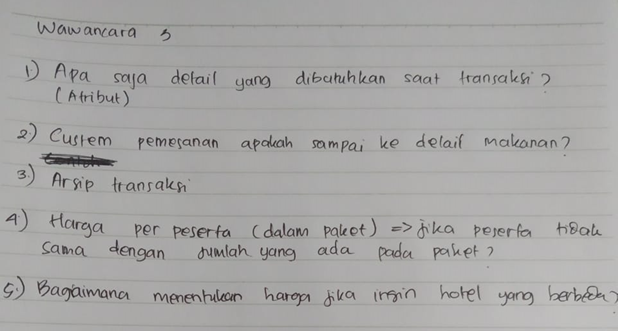 Wawancara 3
1) Apa saja detail yang dibutuhkan saat transaksi?
(Atribut)
2.) Custem pemesanan apakah sampai ke detail makanan?
3.) Arsip transaksi
4) Harga per peserta (dalam paket) => jika peserta tidak
sama dengan jumlah yang ada pada paket?
5.) Bagaimana menentukan harga jika ingin hotel yang berbeda?